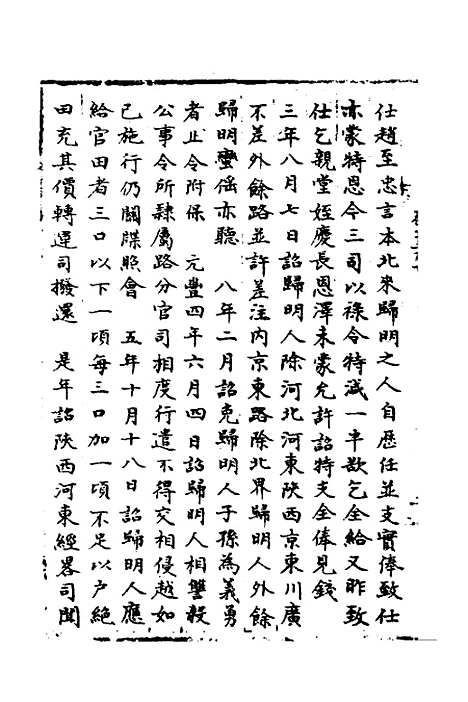 仕趙至忠言本北來歸明之人自歷任並支實俸致仕
亦蒙特恩令三司以祿令特減一半欲乞全給又昨致
仕乞親堂姪慶長恩澤未蒙允許詔特支全俸見錢
三年八月七日詔歸明人除河北河東陝西京東川廣
不差外餘路並許差注內京東路除北界歸明人外餘
歸明蠻傜亦聽　八年二月詔免歸明人子孫為義勇
者止令附保　元豐四年六月四日詔歸明人相讐殺
公事令所隸屬路分官司相度行遣不得交相侵越如
已施行仍關牒照會　五年十月十八日詔歸明人應
給官田者三口以下一頃每三口加一頃不足以戶絕
田充其價轉運司撥還　是年詔陝西河東經畧司聞